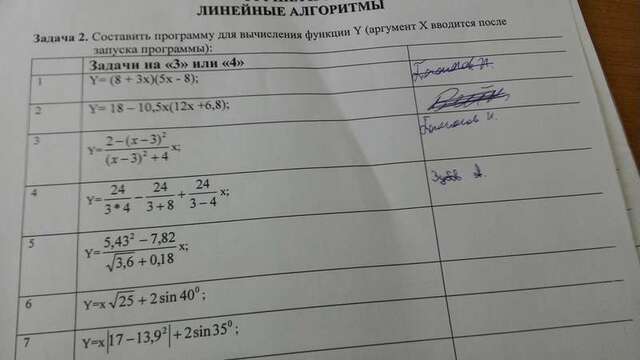 ЛИНЕЙНЫЕ АЛГОРИТМЫ
Задача 2. Составить программу для вычисления функции Y (аргумент X вводится после
запуска программы):
Задачи на «3» или «4»
1 Y= (8 + 3x)(5x - 8);
2 Y= 18 – 10,5x(12x +6,8);
3 Y= (2-(x-3)²)/((x-3)²+4) x;
4 Y= 24/(3*4) - 24/(3+8) + 24/(3-4) x;
5 Y= (5,43² - 7,82)/(√3,6 + 0,18) x;
6 Y=x √25 + 2sin 40⁰;
7 Y=x|17-13,9²| + 2sin 35⁰;